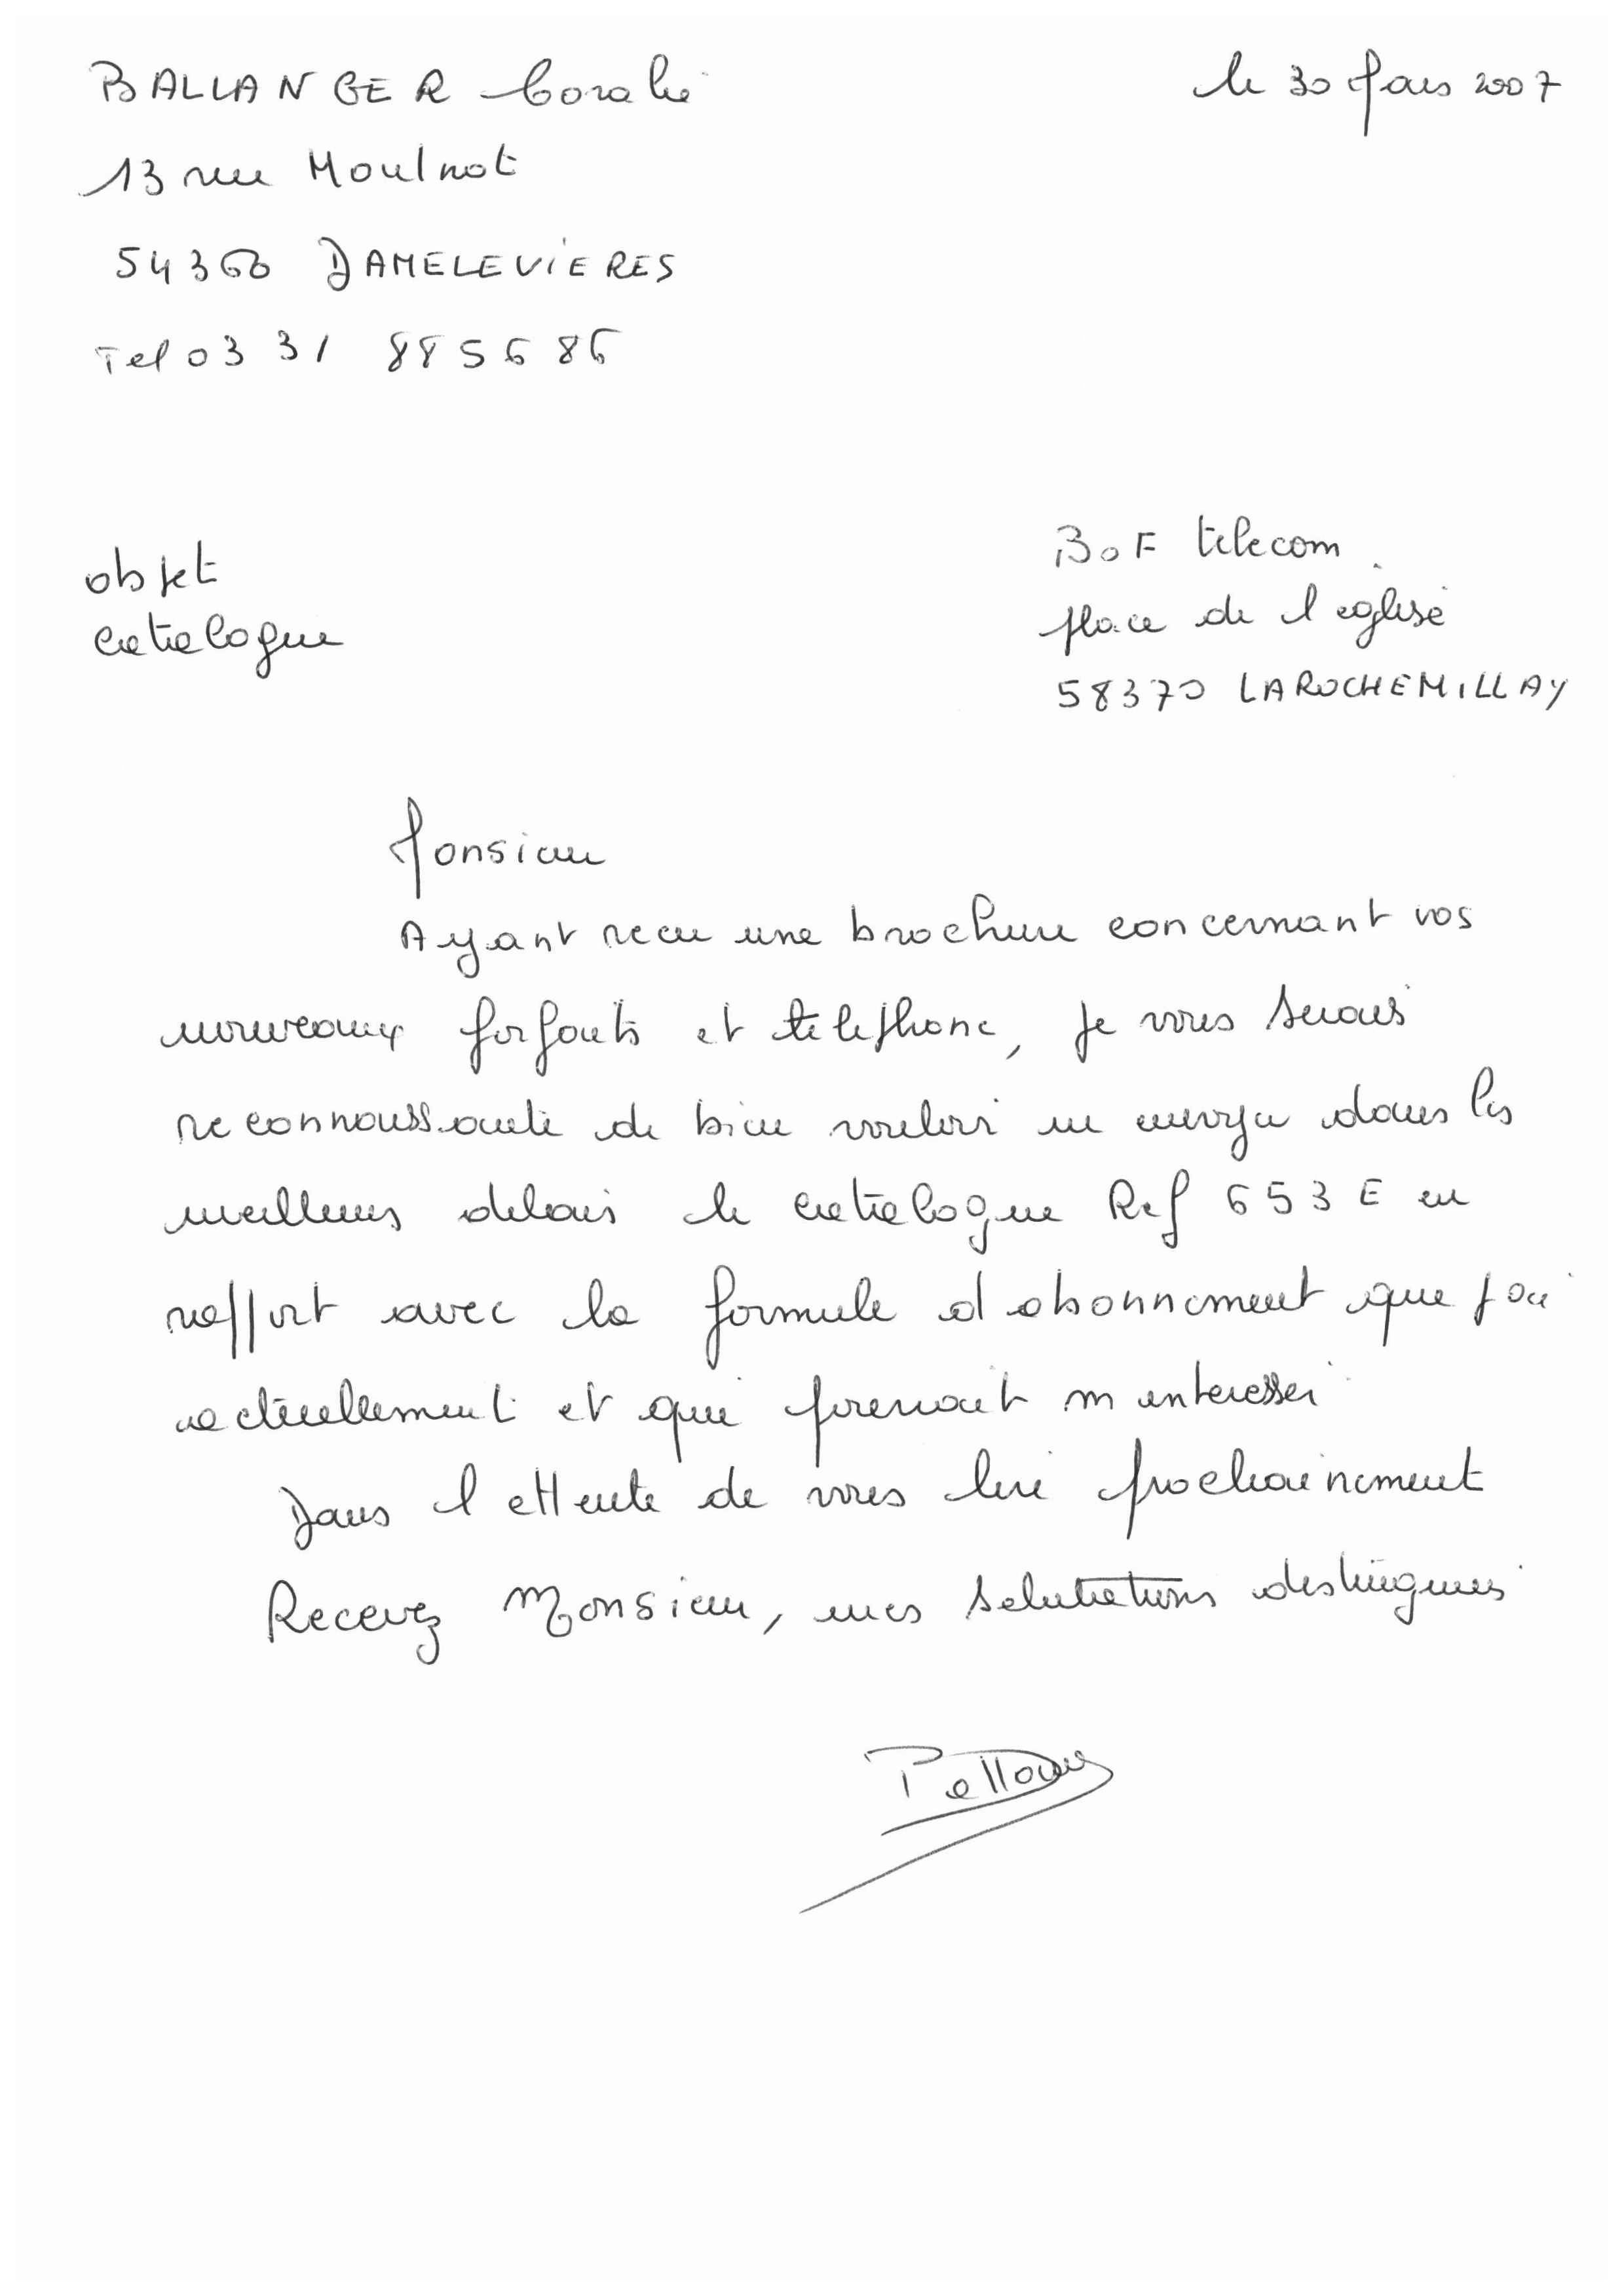 BALLANGER Coralie
le 30 Mars 2007
13 rue Moulnot
54360 DAMELEVIERES
Tel 03 31 88 56 86
objet
catalogue
BoF telecom
place de l eglise
58370 LAROCHEMILLAY
Monsieur
Ayant recu une brochure concernant vos
nouveaux forfaits et telephone, je vous serais
reconnaissante de bien vouloir m envoyer dans les
meilleurs delais le catalogue Ref 653E en
rapport avec la formule d abonnement que j ai
actuellement et qui pourrait m interesser
Dans l attente de vous lire prochainement
Recevez Monsieur, mes salutations distinguees